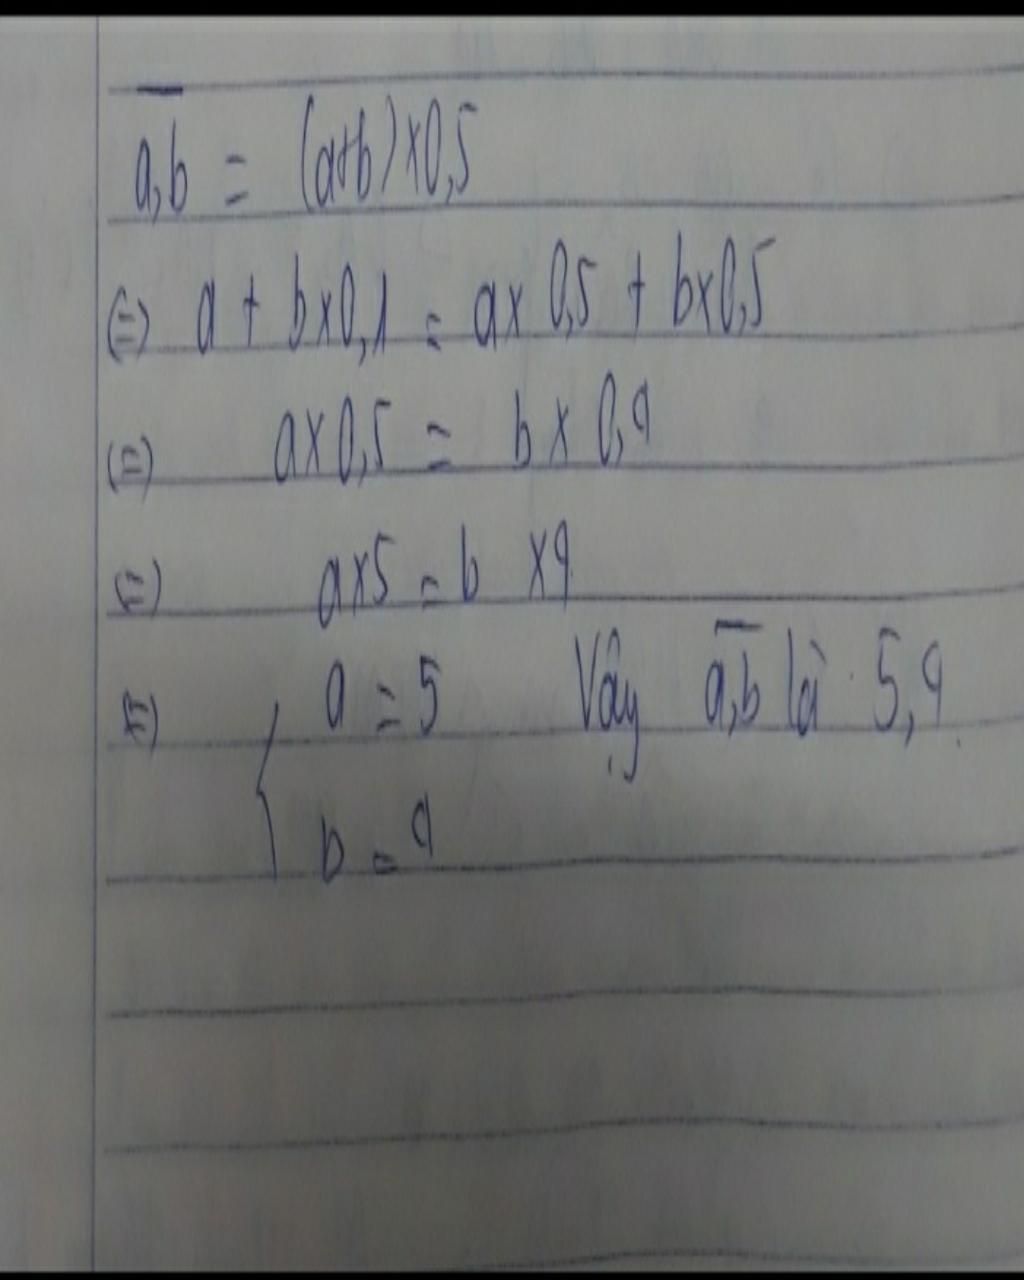 a,b = (a+b)×0,5
(=) a + b×0,1 = a× 0,5 + b×0,5
(=) a×0,5 = b × 0,9
(=) a×5 = b ×9
(=) { a = 5 Vậy a,b là 5,9.
b = 9